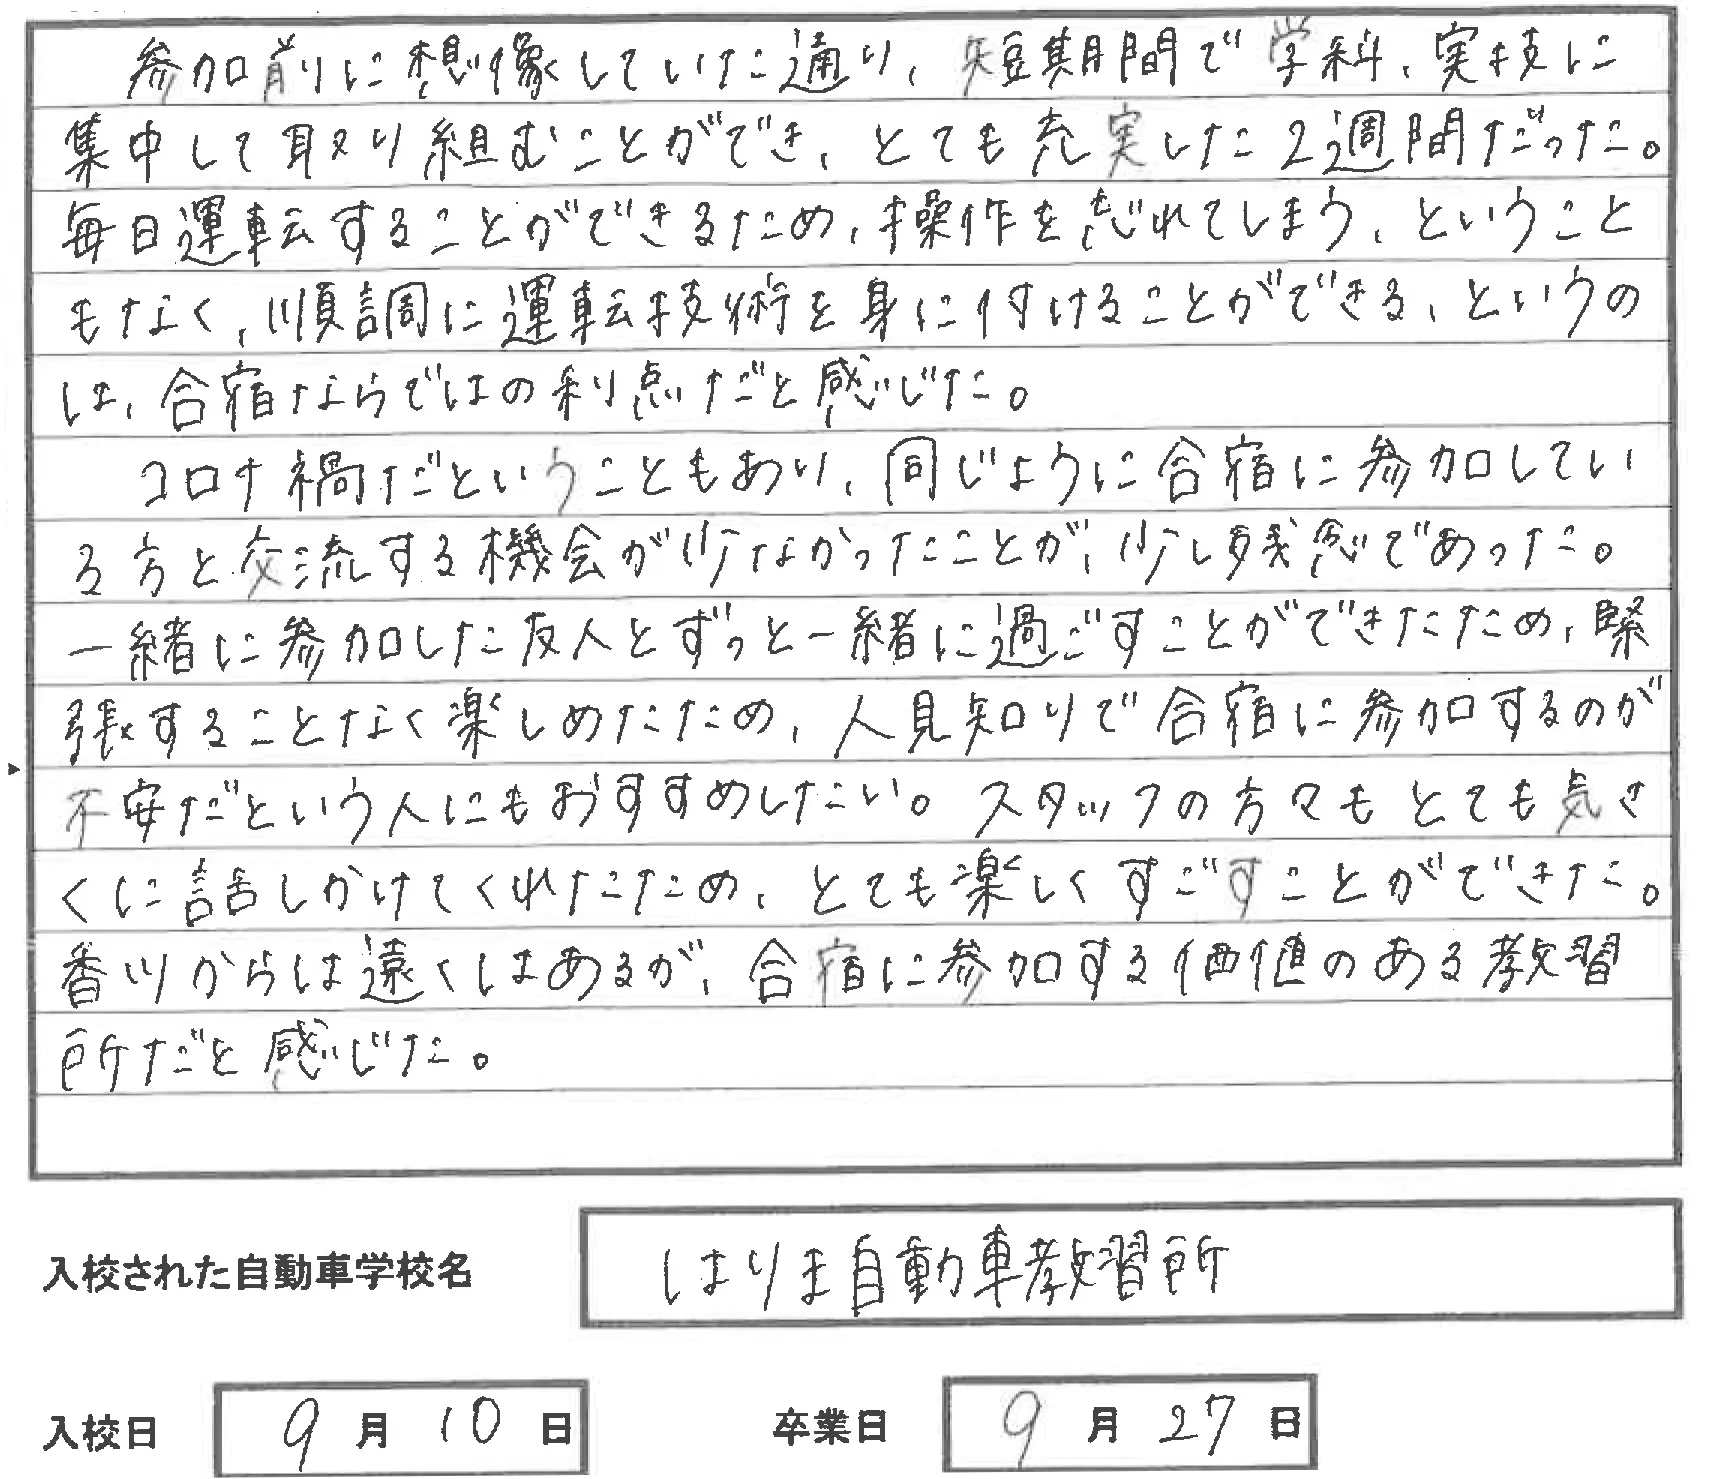 参加前に想像していた通り、短期間で学科、実技に
集中して取り組むことができ、とても充実した2週間だった。
毎日運転することができるため、操作を忘れてしまう、ということ
もなく、順調に運転技術を身に付けることができる、というの
は、合宿ならではの利点だと感じた。
コロナ禍だということもあり、同じように合宿に参加してい
る方と交流する機会が少なかったことが、少し残念であった。
一緒に参加した友人とずっと一緒に過ごすことができたため、緊
張することなく楽しめたため、人見知りで合宿に参加するのが
不安だという人にもおすすめしたい。スタッフの方々もとても気さ
くに話しかけてくれたため、とても楽しくすごすことができた。
香川からは遠くはあるが、合宿に参加する価値のある教習
所だと感じた。
入校された自動車学校名 はりま自動車教習所
入校日 9月10日 卒業日 9月27日